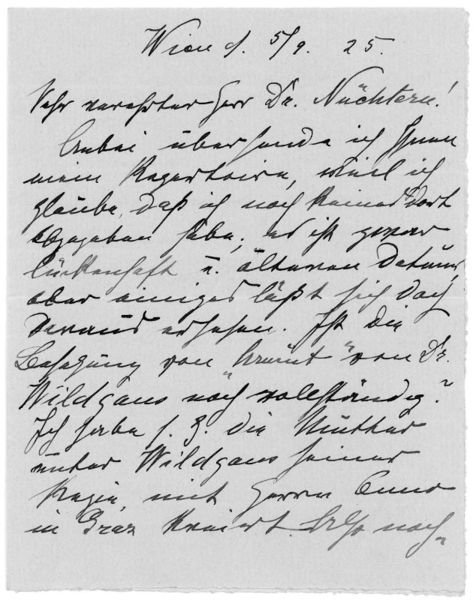 Wien d. 5/9. 25.
Sehr verehrter Herr Dr. Nüchtern!
Anbei übersende ich Ihnen
mein Repertoire, weil ich
glaube, daß ich noch keines dort
abgegeben habe; es ist zwar
lückenhaft u. älteren Datums,
aber einiges läßt sich doch
daraus ersehen. Ist die
Besetzung von „Armut“ von Dr.
Wildgans noch vollständig?
Ich habe s. Z. die Mutter
unter Wildgans seiner
Regie, mit Herrn
in Graz kreiert. noch